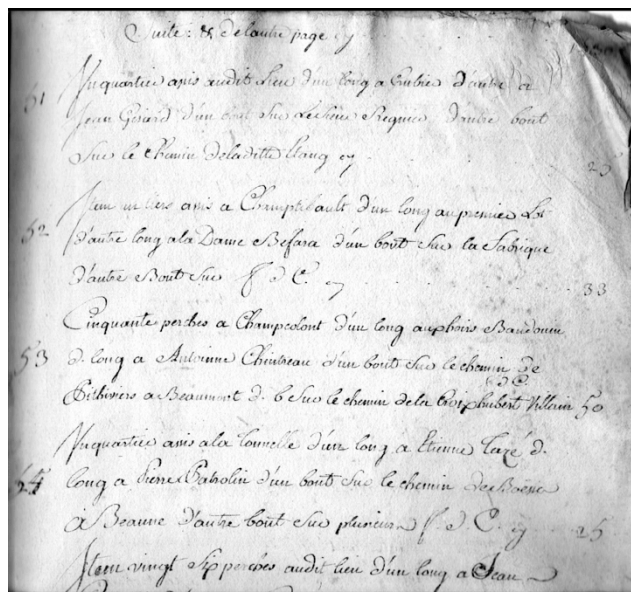 Suitte : & de lautre page cy
51 Un quartier assis audit Lieu d'un long a d'autre a
Jean Gerard d'un bout sur d'autre bout
Sur le Chemin deladitte Etang cy 25
52 Item un tiers assis a Champtibault d'un long au premier Lot
d'autre long ala Dame Befara d'un bout sur la fabrique
d'autre Bout sur f. d. C. cy 33
53 Cinquante perches a Champcolont d'un long aux hoirs Baudouin
d. long a Antoinne Chintreau d'un bout sur le chemin de
Pithiviers a Beaumont d. b sur le chemin dela Croix hubert Villain 50
54 Un quartier assis ala tonnelle d'un long a Etienne d.
long a Pierre Patrolin d'un bout sur le chemin de
a Beaune d'autre bout sur plusieurs f. d. C. cy 25
Item vingt six perches audit lieu d'un long a Jean